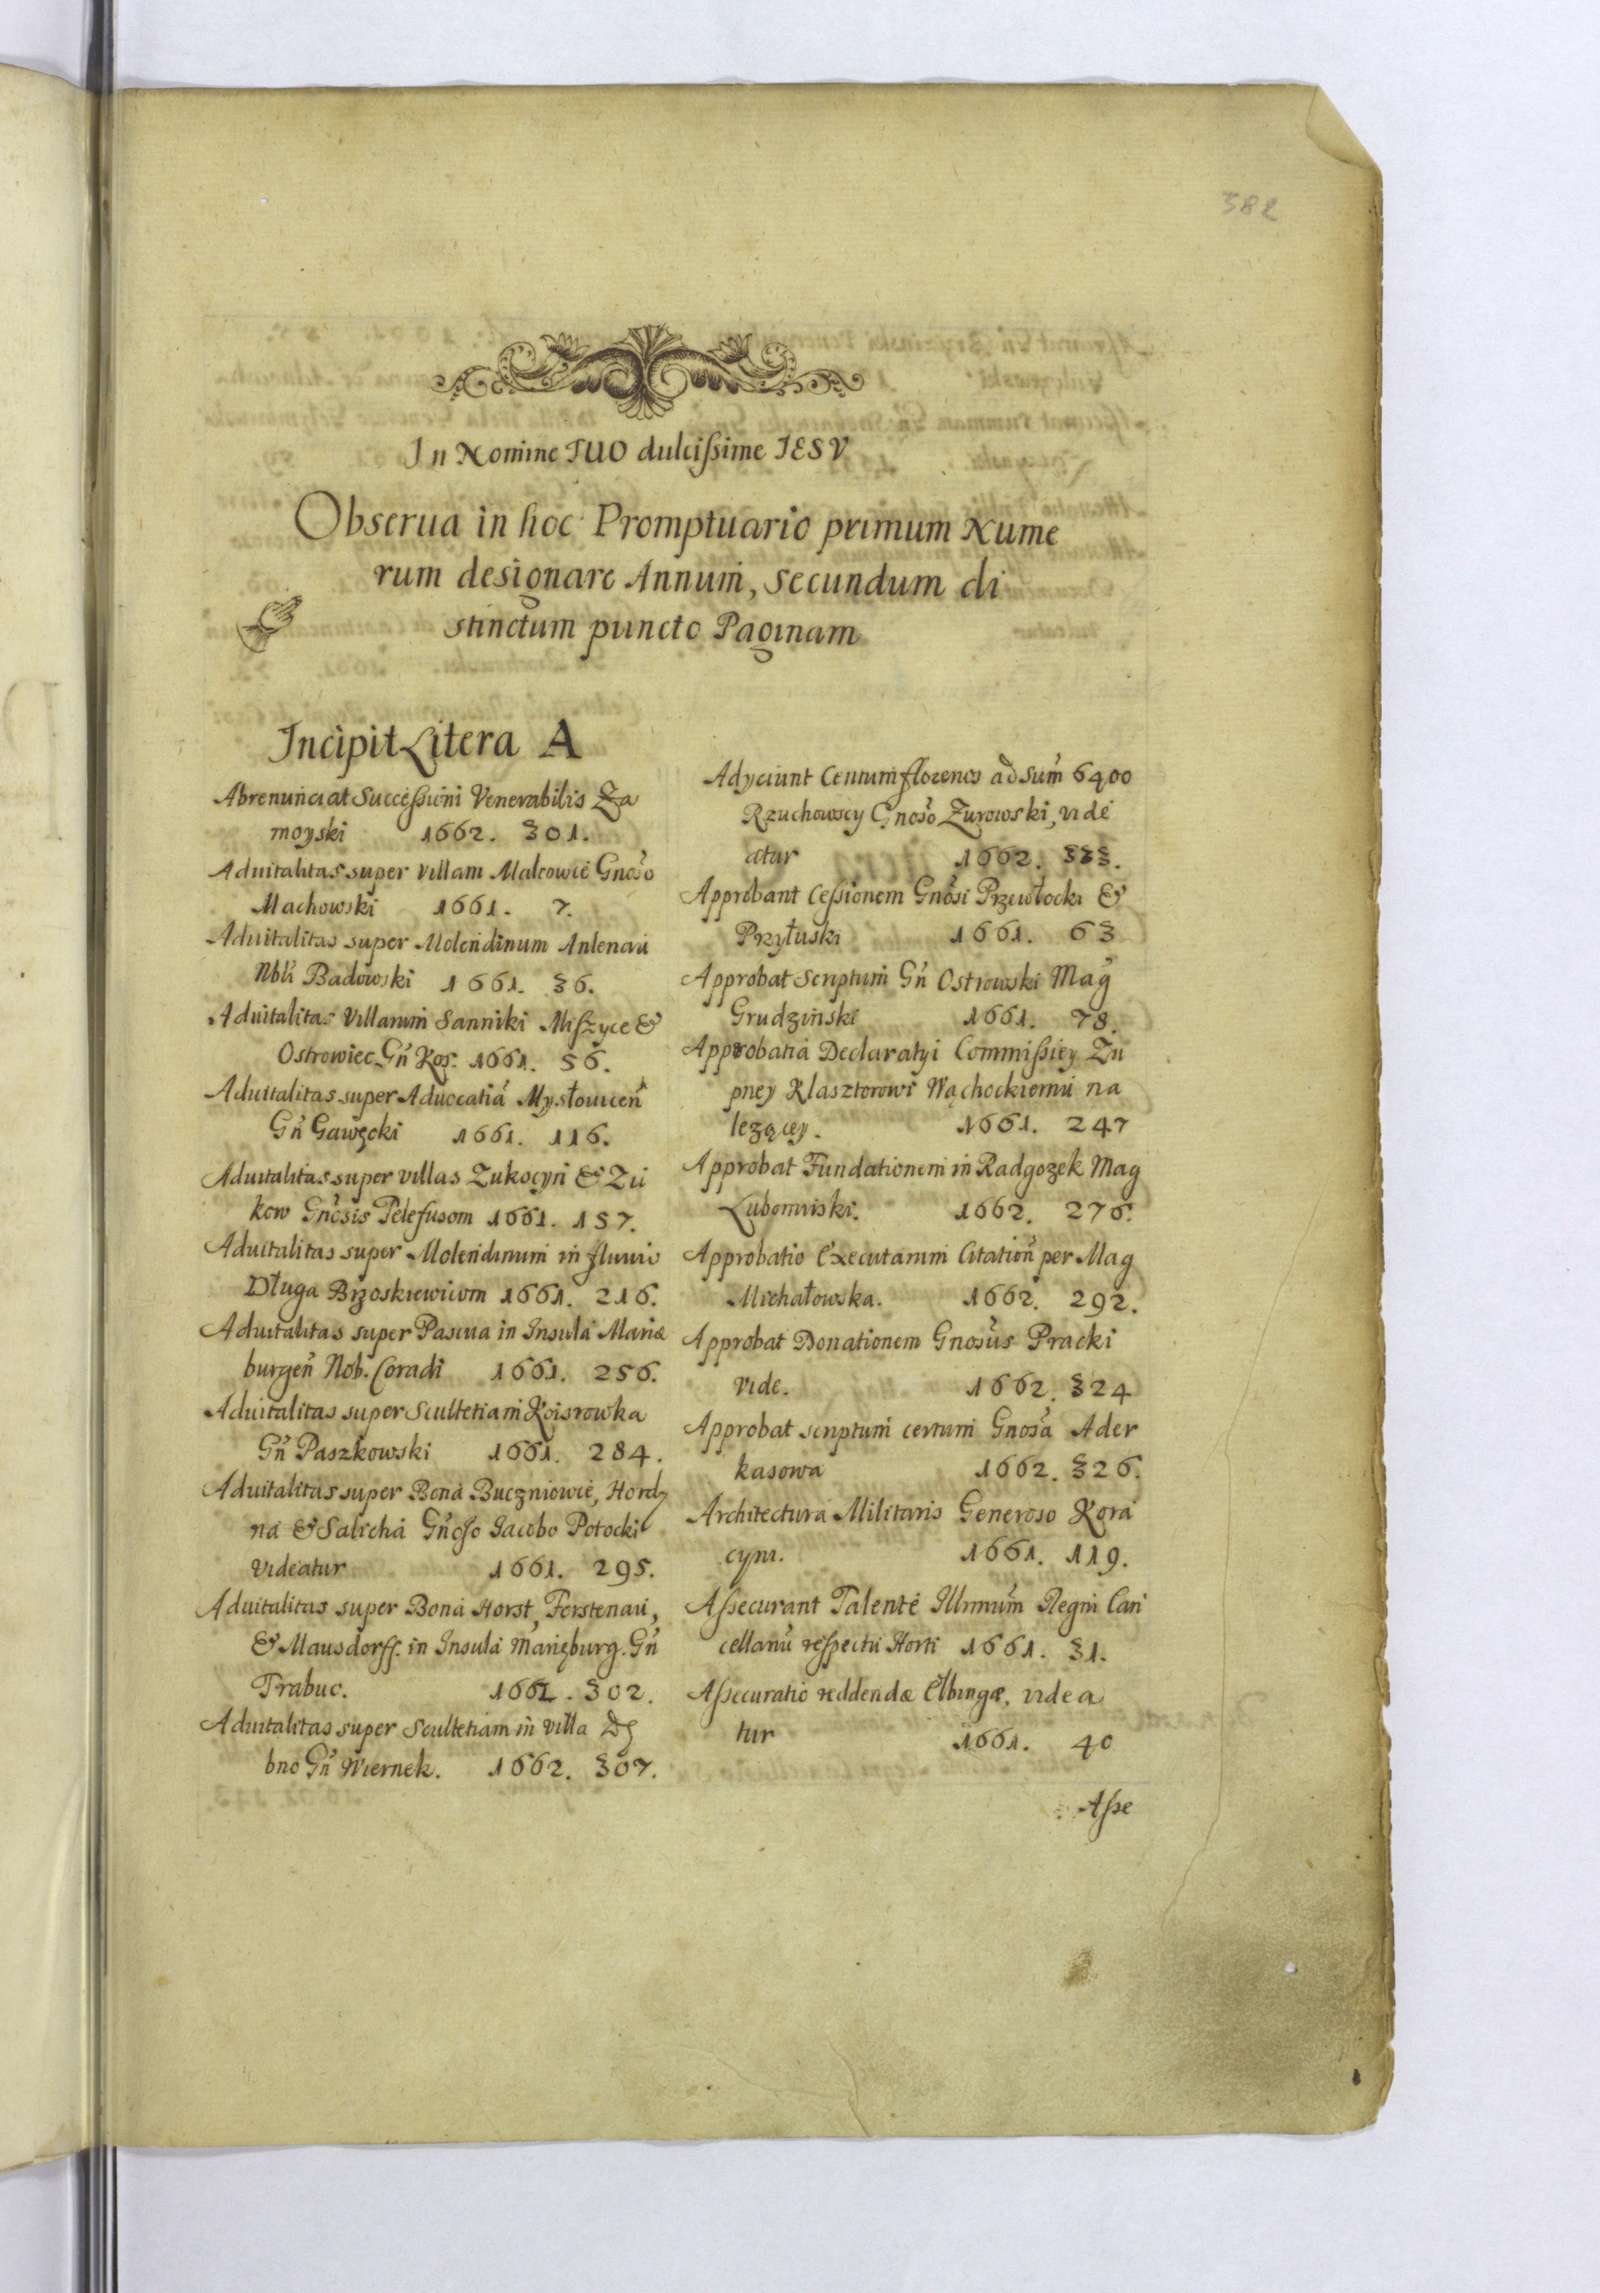 382
In Nomine TUO dulcissime IESV
Obserua in hoc Promptuario primum Nume
rum designare Annum, secundum di
stinctum puncto Paginam
Incipit Litera A
Abrenunciat Successioni Venerabilis Za
moyski 1662. 301.
Aduitalitas super villam Malcowie Gnoso
Machowski 1661. 7.
Aduitalitas super Molendinum Antenau
Nbli Badowski 1661. 36.
Aduitalitas Villarum Sanniki Miszyce &
Ostrowiec Gn Kos. 1661. 56.
Aduitalitas super Aduocatia Mysłowicen
Gn Gawęcki 1661. 116.
Aduitalitas super villas Zukocyn & Zu
kow Gnosis Telefusom 1661. 157.
Aduitalitas super Molendinum in fluuio
Długa Brzoskiewicom 1661. 216.
Aduitalitas super Pascua in Insula Mariæ
burgen Nob. Coradi 1661. 256.
Aduitalitas super Scultetiam Koisrowka
Gn Paszkowski 1661. 284.
Aduitalitas super Bona Buczniowie, Hordy
na & Salicha Gnoso Iacobo Potocki
videatur 1661. 295.
Aduitalitas super Bona Horst, Ferstenau,
& Mausdorff. in Insula Marięburg. Gn
Trabuc. 1662. 302.
Aduitalitas super Scultetiam in villa Dę
bno Gn Wiernek. 1662. 307.
Adyciunt Centum florenos ad sum 6400
Rzuchowscy Gnoso Zurowski, vide
atur 1662. 333.
Approbant Cessionem Gnosi Przewłocki &
Przyłuski 1661. 63
Approbat Scriptum Gn Ostrowski Mag
Grudzinski 1661. 78.
Approbatia Declaratyi Commissiey Zu
pney Klasztorowi Wąchockiemu na
lezącey. 1661. 247
Approbat Fundationem in Radgozek Mag
Lubomirski. 1662. 276.
Approbatio Executarum Citation per Mag
Michałowska. 1662. 292.
Approbat Donationem Gnosus Pracki
vide. 1662. 324
Approbat scriptum certum Gnosa Ader
kasowa 1662. 326.
Architectura Militaris Generoso Kora
cyni. 1661. 119.
Assecurant Talente Illrimum Regni Can
cellanu respectu Horti 1661. 31.
Assecuratio reddendæ Elbingæ, videa
tur 1661. 40
Asse